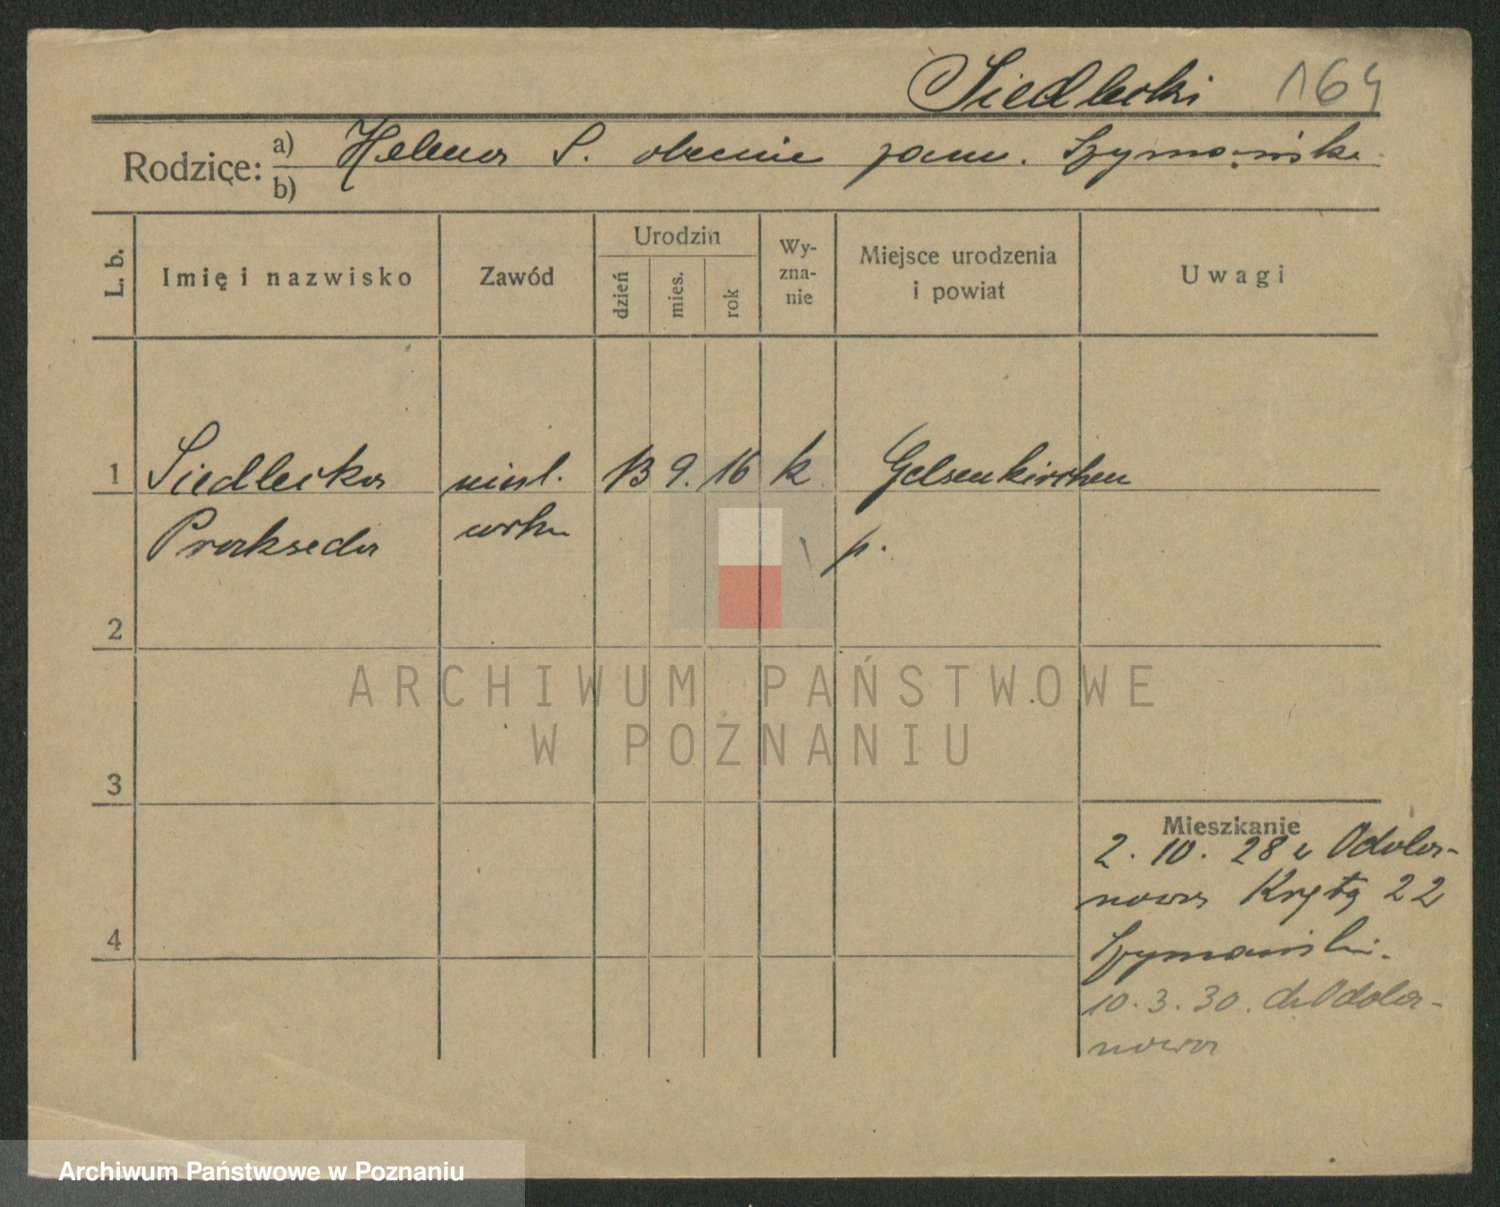 Siedlecki 164
Rodzice: a) Helena S. obecnie zam. Szymańska
b)
L. b. Imię i nazwisko Zawód Urodzin dzień mies. rok Wy-zna-nie Miejsce urodzenia i powiat Uwagi
1 Siedlecka 13 9. 16 k Gelsenkirchen
Prakseda p.
2
3
4
Mieszkanie
2. 10. 28 z Odola-
nowa Kręta 22
Szymański.
10. 3. 30. do Odola-
nowa
ARCHIWUM PAŃSTWOWE
W POZNANIU
Archiwum Państwowe w Poznaniu